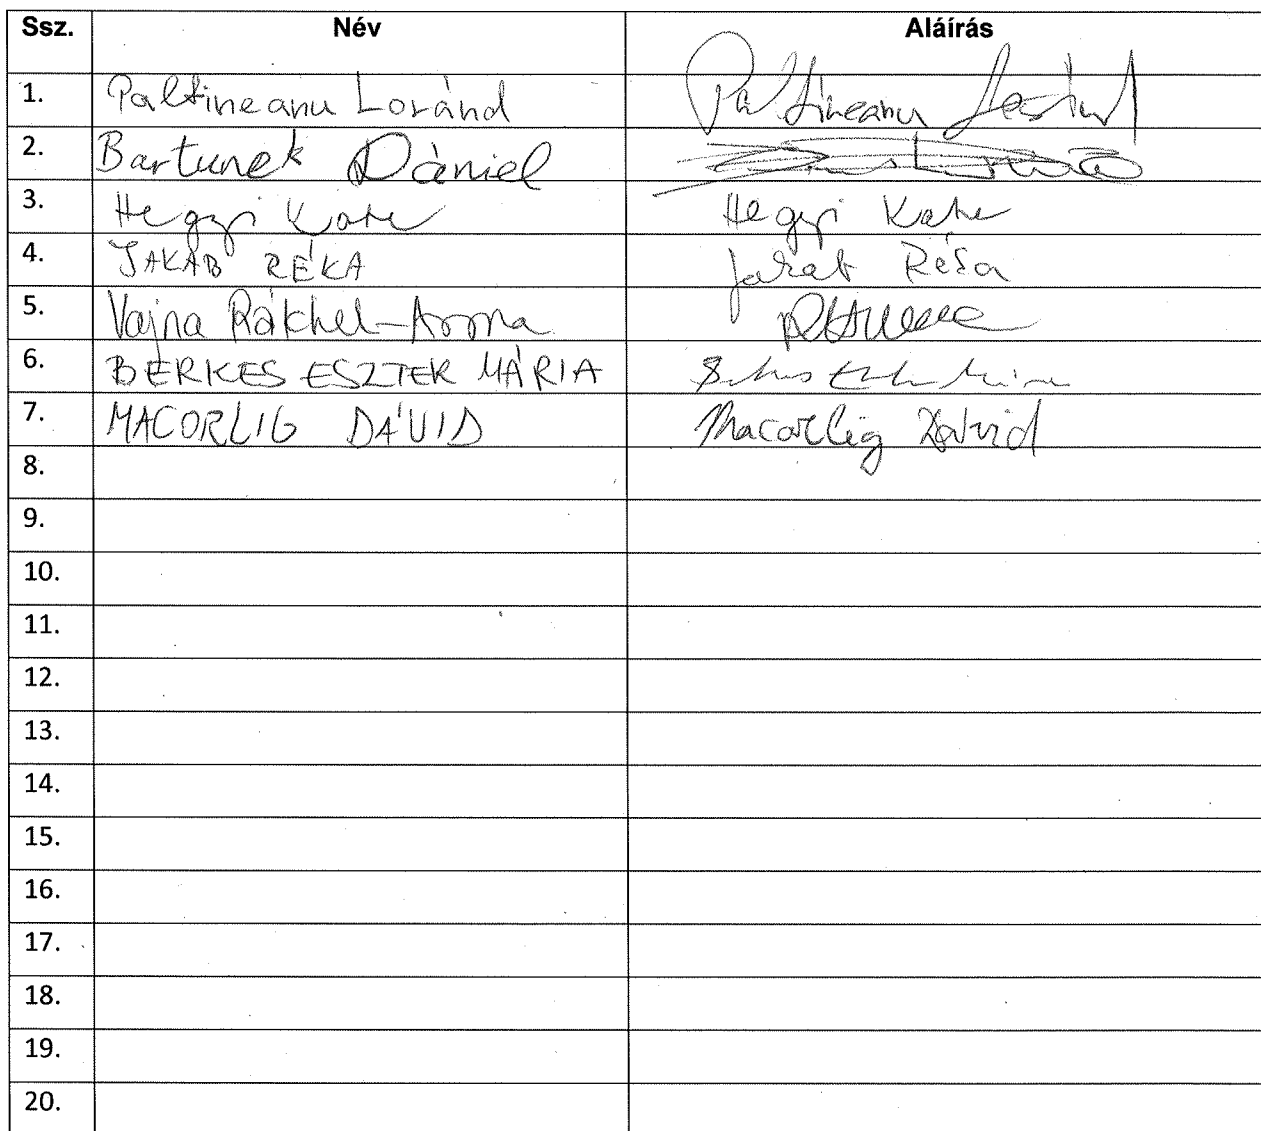 Ssz. Név Aláírás
1. Paltineanu Loránd Paltineanu Loránd
2. Bartunek Dániel
3. Hegyi Kate Hegyi Kate
4. JAKAB RÉKA Jakab Réka
5. Vajna Ráchel-Anna
6. BERKES ESZTER MÁRIA
7. MACORLIG DÁVID Macorlig Dávid
8.
9.
10.
11.
12.
13.
14.
15.
16.
17.
18.
19.
20.